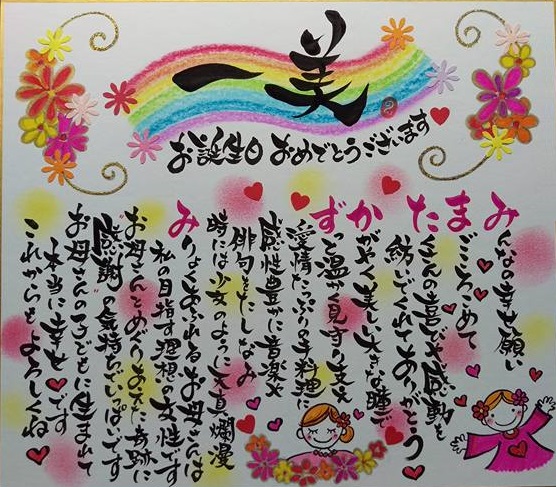 一美
お誕生日 おめでとうございます
みんなの幸せ願い
まごころこめて
たくさんの喜びや感動を
紡いでくれてありがとう
かがやく美しい大きな瞳で
ずっと温かく見守り支え
愛情たっぷり手料理に
感性豊かに音楽や
俳句をたしなみ
時には少女のように天真爛漫
みりょくあふれるお母さんは
私の目指す理想の女性です
お母さんとめぐりあえた奇跡に
"感謝"の気持ちでいっぱいです
お母さんの子どもに生まれて
本当に幸せです
これからもよろしくね